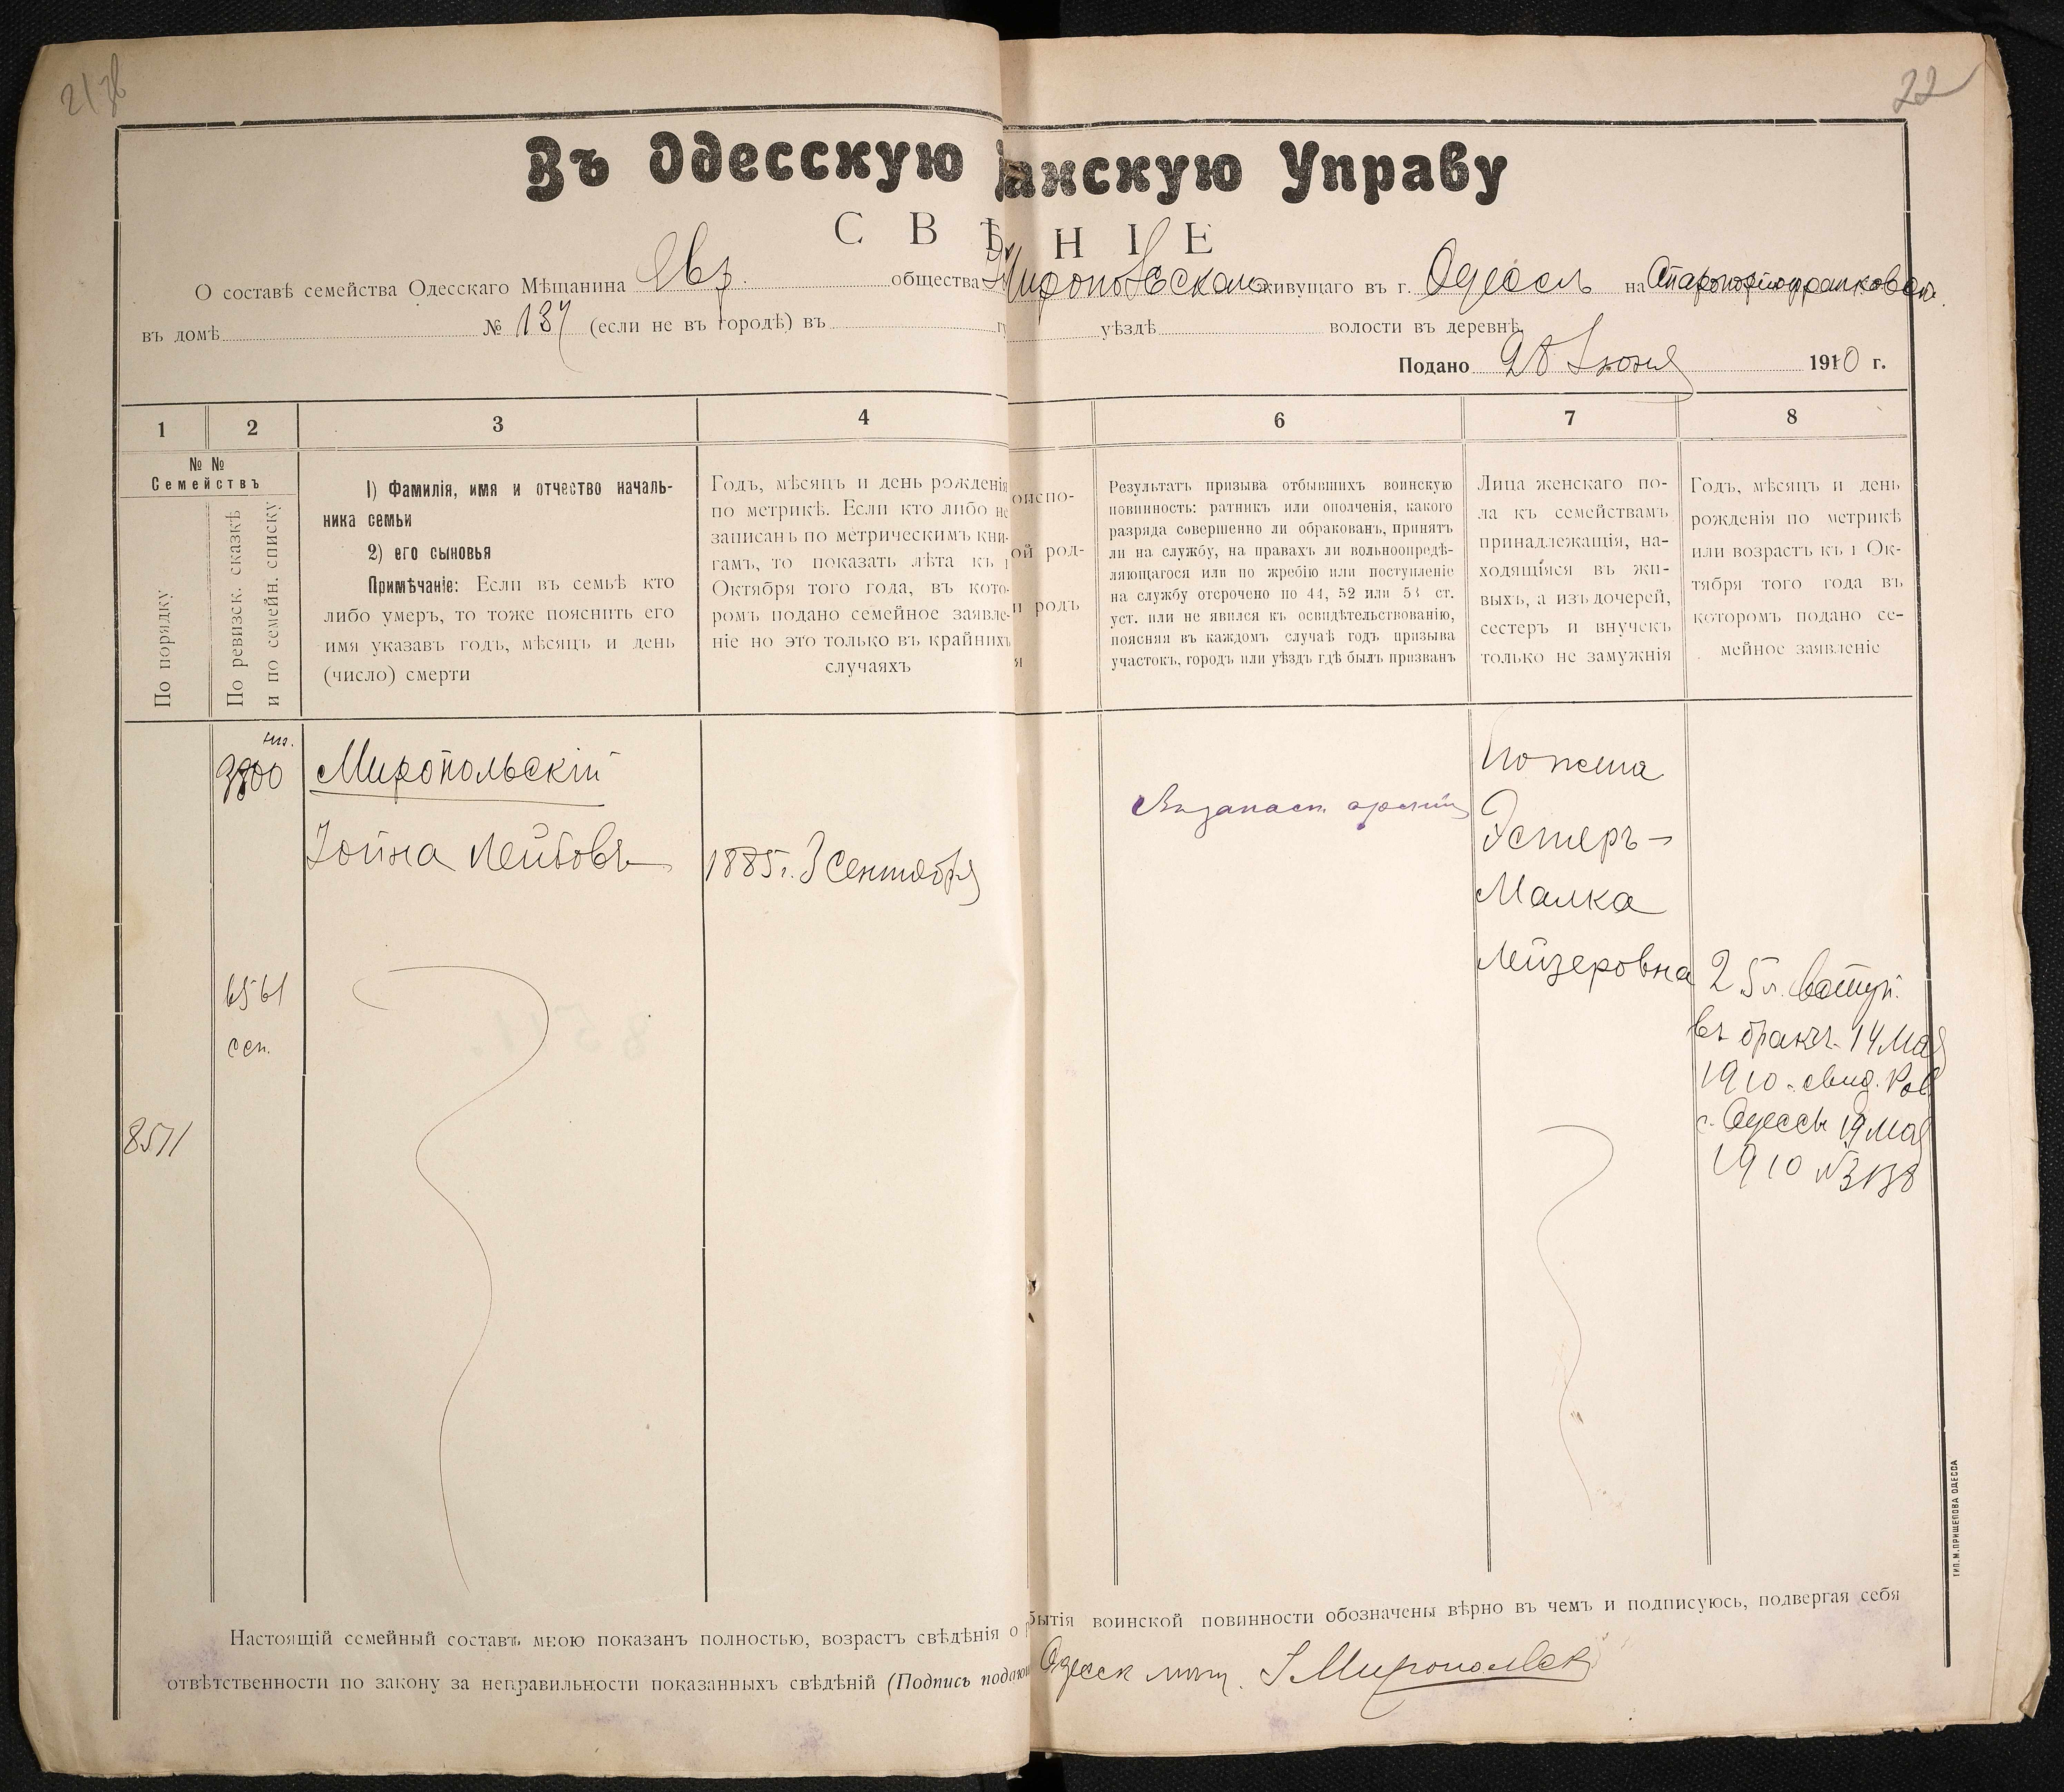 22
Въ Одесскую анскую Управу
С В Ѣ Н І Е
О составѣ семейства Одесскаго Мѣщанина Евр. общества живущаго въ г. Одессѣ на
въ домѣ № 137 (если не въ городѣ) въ уѣздѣ волости въ деревнѣ
Подано 28 Іюня 1910 г.
1 2 3 4 6 7 8
№ №
Семействъ
По порядку
По ревизск. сказкѣ
и по семейн. списку
1) Фамилія, имя и отчество началь-
ника семьи
2) его сыновья
Примѣчаніе: Если въ семьѣ кто
либо умеръ, то тоже пояснить его
имя указавъ годъ, мѣсяцъ и день
(число) смерти
Годъ, мѣсяцъ и день рожденія
по метрикѣ. Если кто либо не
записанъ по метрическимъ кни-
гамъ, то показать лѣта къ 1
Октября того года, въ кото-
ромъ подано семейное заявле-
ніе но это только въ крайнихъ
случаяхъ
оиспо-
ой род-
и родъ
я
Результатъ призыва отбывшихъ воинскую
повинность: ратникъ или ополченія, какого
разряда совершенно ли обракованъ, принятъ
ли на службу, на правахъ ли вольноопредѣ-
ляющагося или по жребію или поступленіе
на службу отсрочено по 44, 52 или 53 ст.
уст. или не явился къ освидѣтельствованію,
поясняя въ каждомъ случаѣ годъ призыва
участокъ, городъ или уѣздъ гдѣ былъ призванъ
Лица женскаго по-
ла къ семействамъ
принадлежащія, на-
ходящіяся въ жи-
выхъ, а изъ дочерей,
сестеръ и внучекъ
только не замужнія
Годъ, мѣсяцъ и день
рожденія по метрикѣ
или возрастъ къ 1 Ок-
тября того года въ
которомъ подано се-
мейное заявленіе
Миропольскій
Іойна Лейбовъ
1885 г. 3 Сентября
Въ запасѣ арміи
Его жена
Эстеръ-
Малка
Лейзеровна
25 л. вступ.
въ бракъ 14 Мая
1910 свид. Рав
г. Одессы 19 Мая
1910 № 3138
6561
сем.
8571
Настоящій семейный составъ мною показанъ полностью, возрастъ свѣдѣнія о бытія воинской повинности обозначены вѣрно въ чемъ и подписуюсь, подвергая себя
отвѣтственности по закону за неправильности показанныхъ свѣдѣній (Подпись подаю Одесск мѣщ. І Миропольск
ТИП. М. ПРИЩЕПОВА ОДЕССА